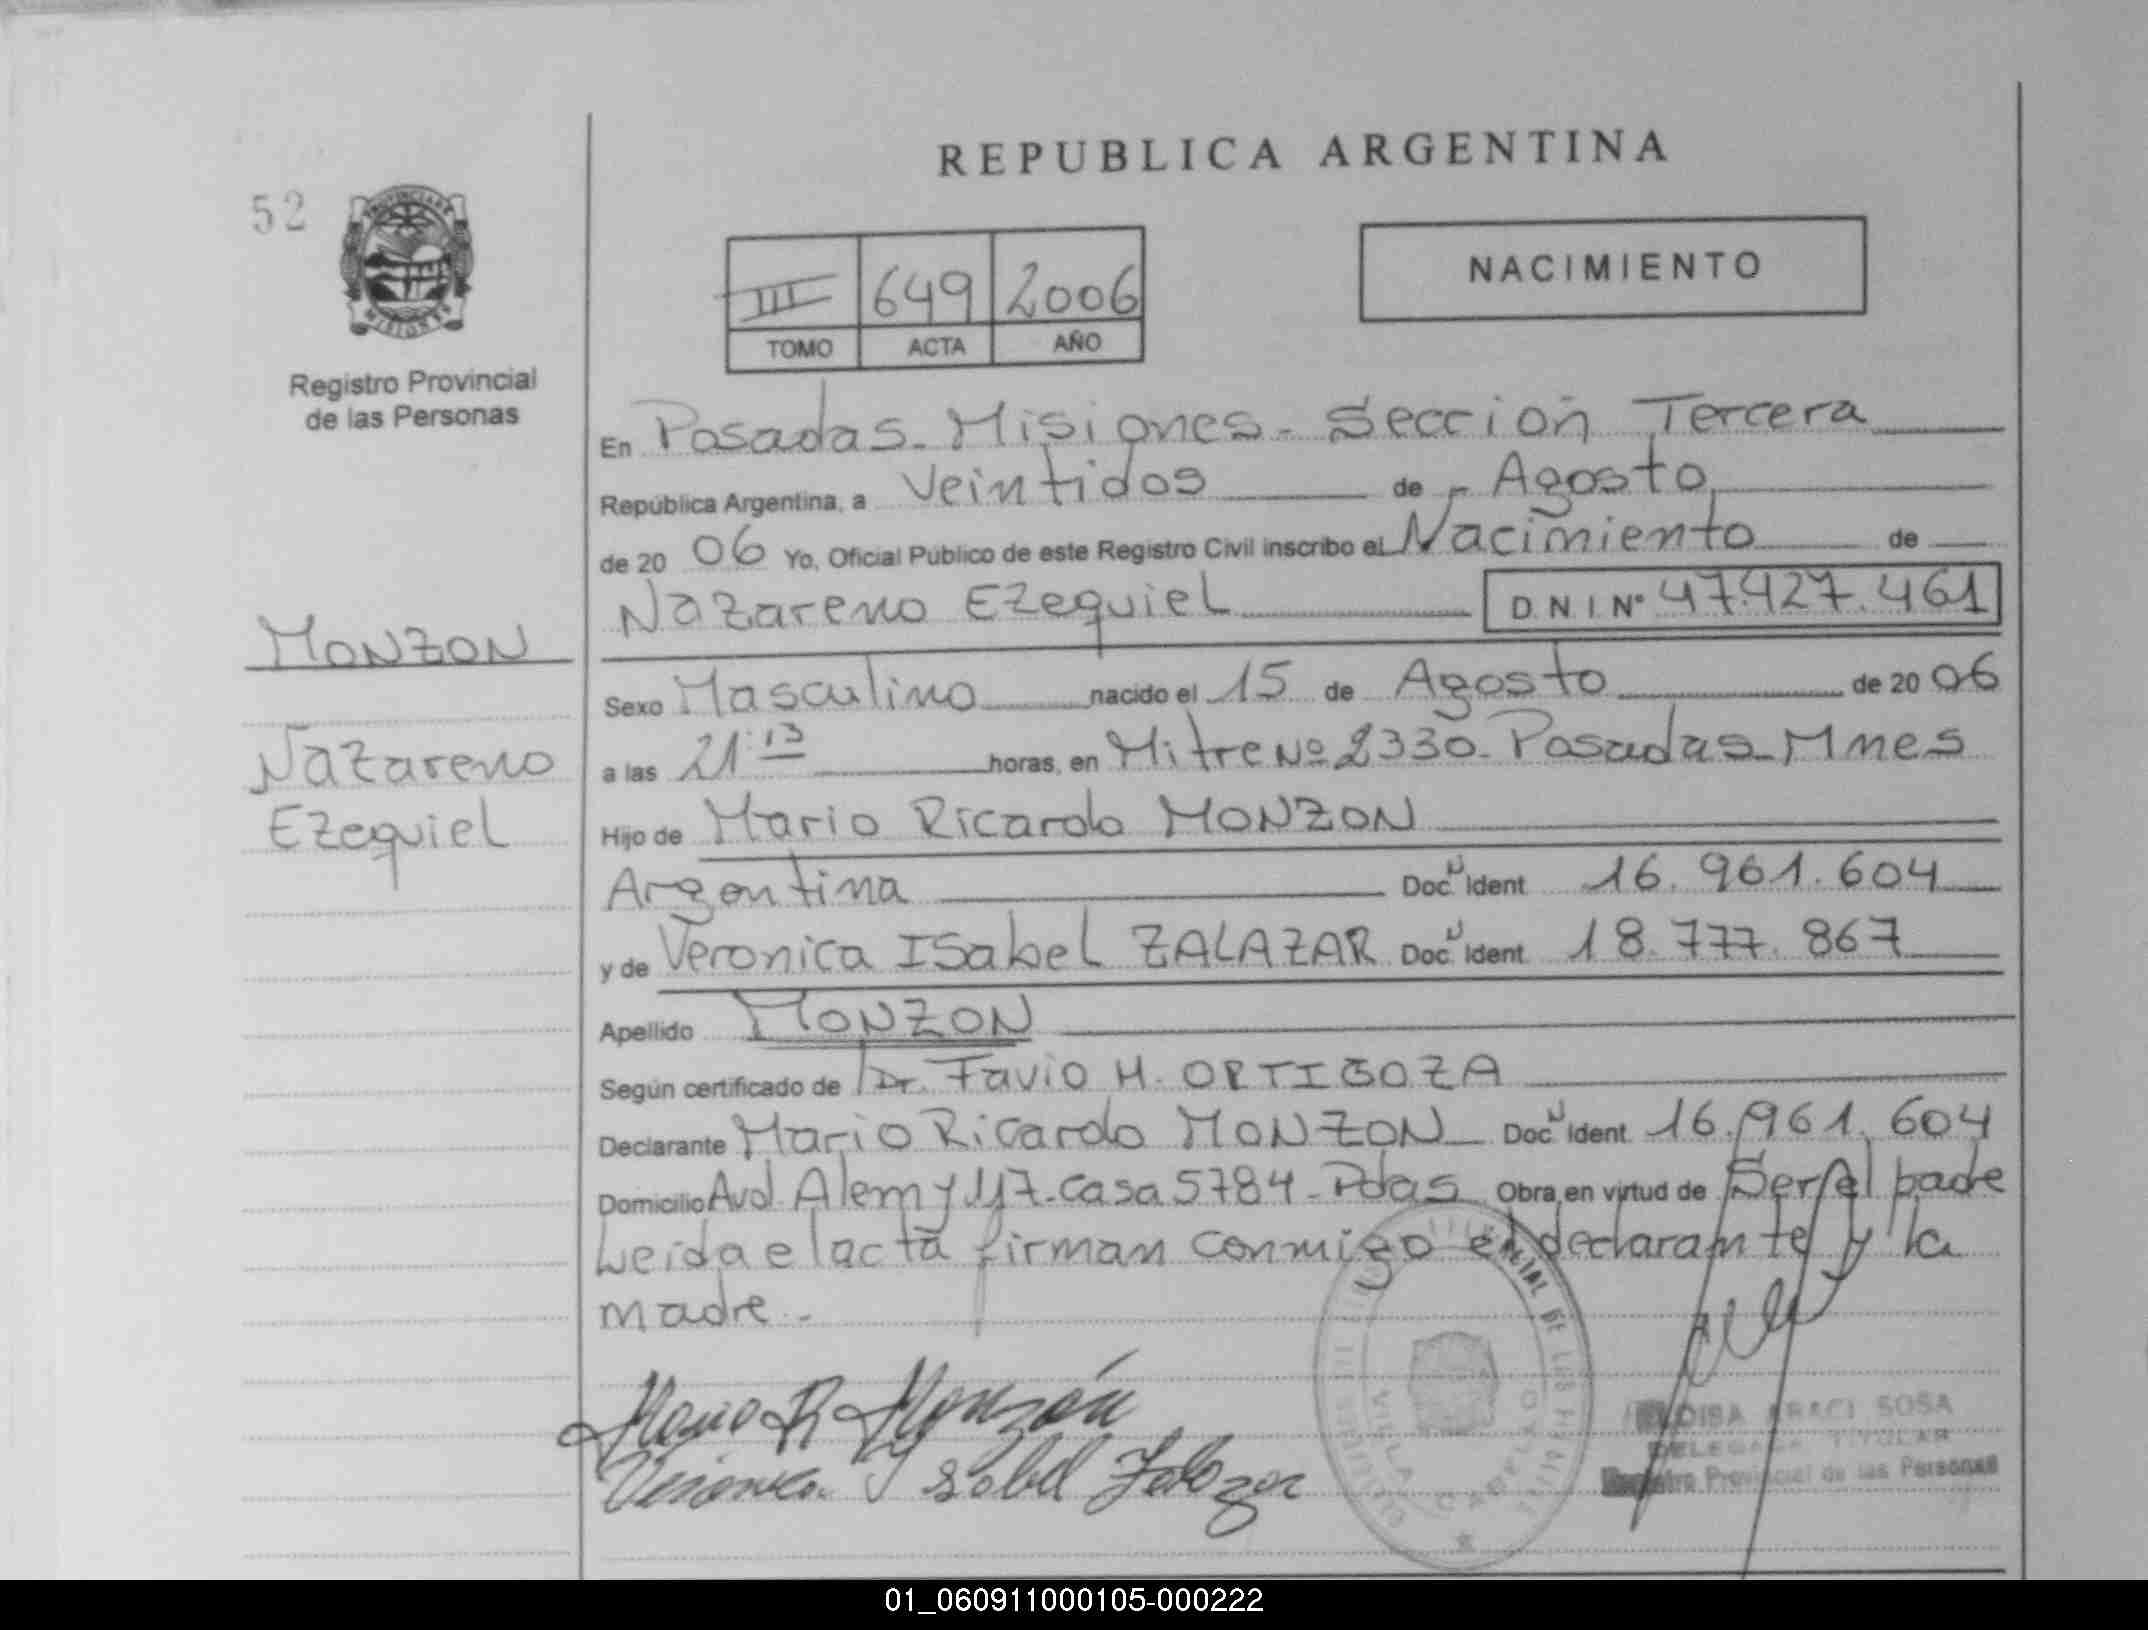 REPUBLICA ARGENTINA
52
PROVINCIA DE
MISIONES
Registro Provincial
de las Personas
III 649 2006
TOMO ACTA AÑO
NACIMIENTO
En Posadas - Misiones - Sección Tercera
República Argentina, a Veintidos de Agosto
de 20 06 Yo, Oficial Público de este Registro Civil inscribo el Nacimiento de
Nazareno Ezequiel D.N.I. Nº 47.427.461
MONZON
Nazareno
Ezequiel
Sexo Masculino nacido el 15 de Agosto de 20 06
a las 21:13 horas, en Mitre Nº 2330 - Posadas - Mnes
Hijo de Mario Ricardo MONZON
Argentina Doc. Ident 16.961.604
y de Veronica Isabel ZALAZAR Doc. Ident. 18.777.867
Apellido MONZON
Según certificado de Dr. Favio H. ORTIGOZA
Declarante Mario Ricardo MONZON Doc. Ident. 16.961.604
Domicilio Avd. Alem y 117 - casa 5784 - Pdas Obra en virtud de Ser el padre
Leida el acta firman conmigo el declarante y la
madre.-
Mario R Monzón
Veronica Isabel Zalazar
ARACI SOSA
DELEGADA TITULAR
Registro Provincial de las Personas
VILLA CABELLO
01_060911000105-000222